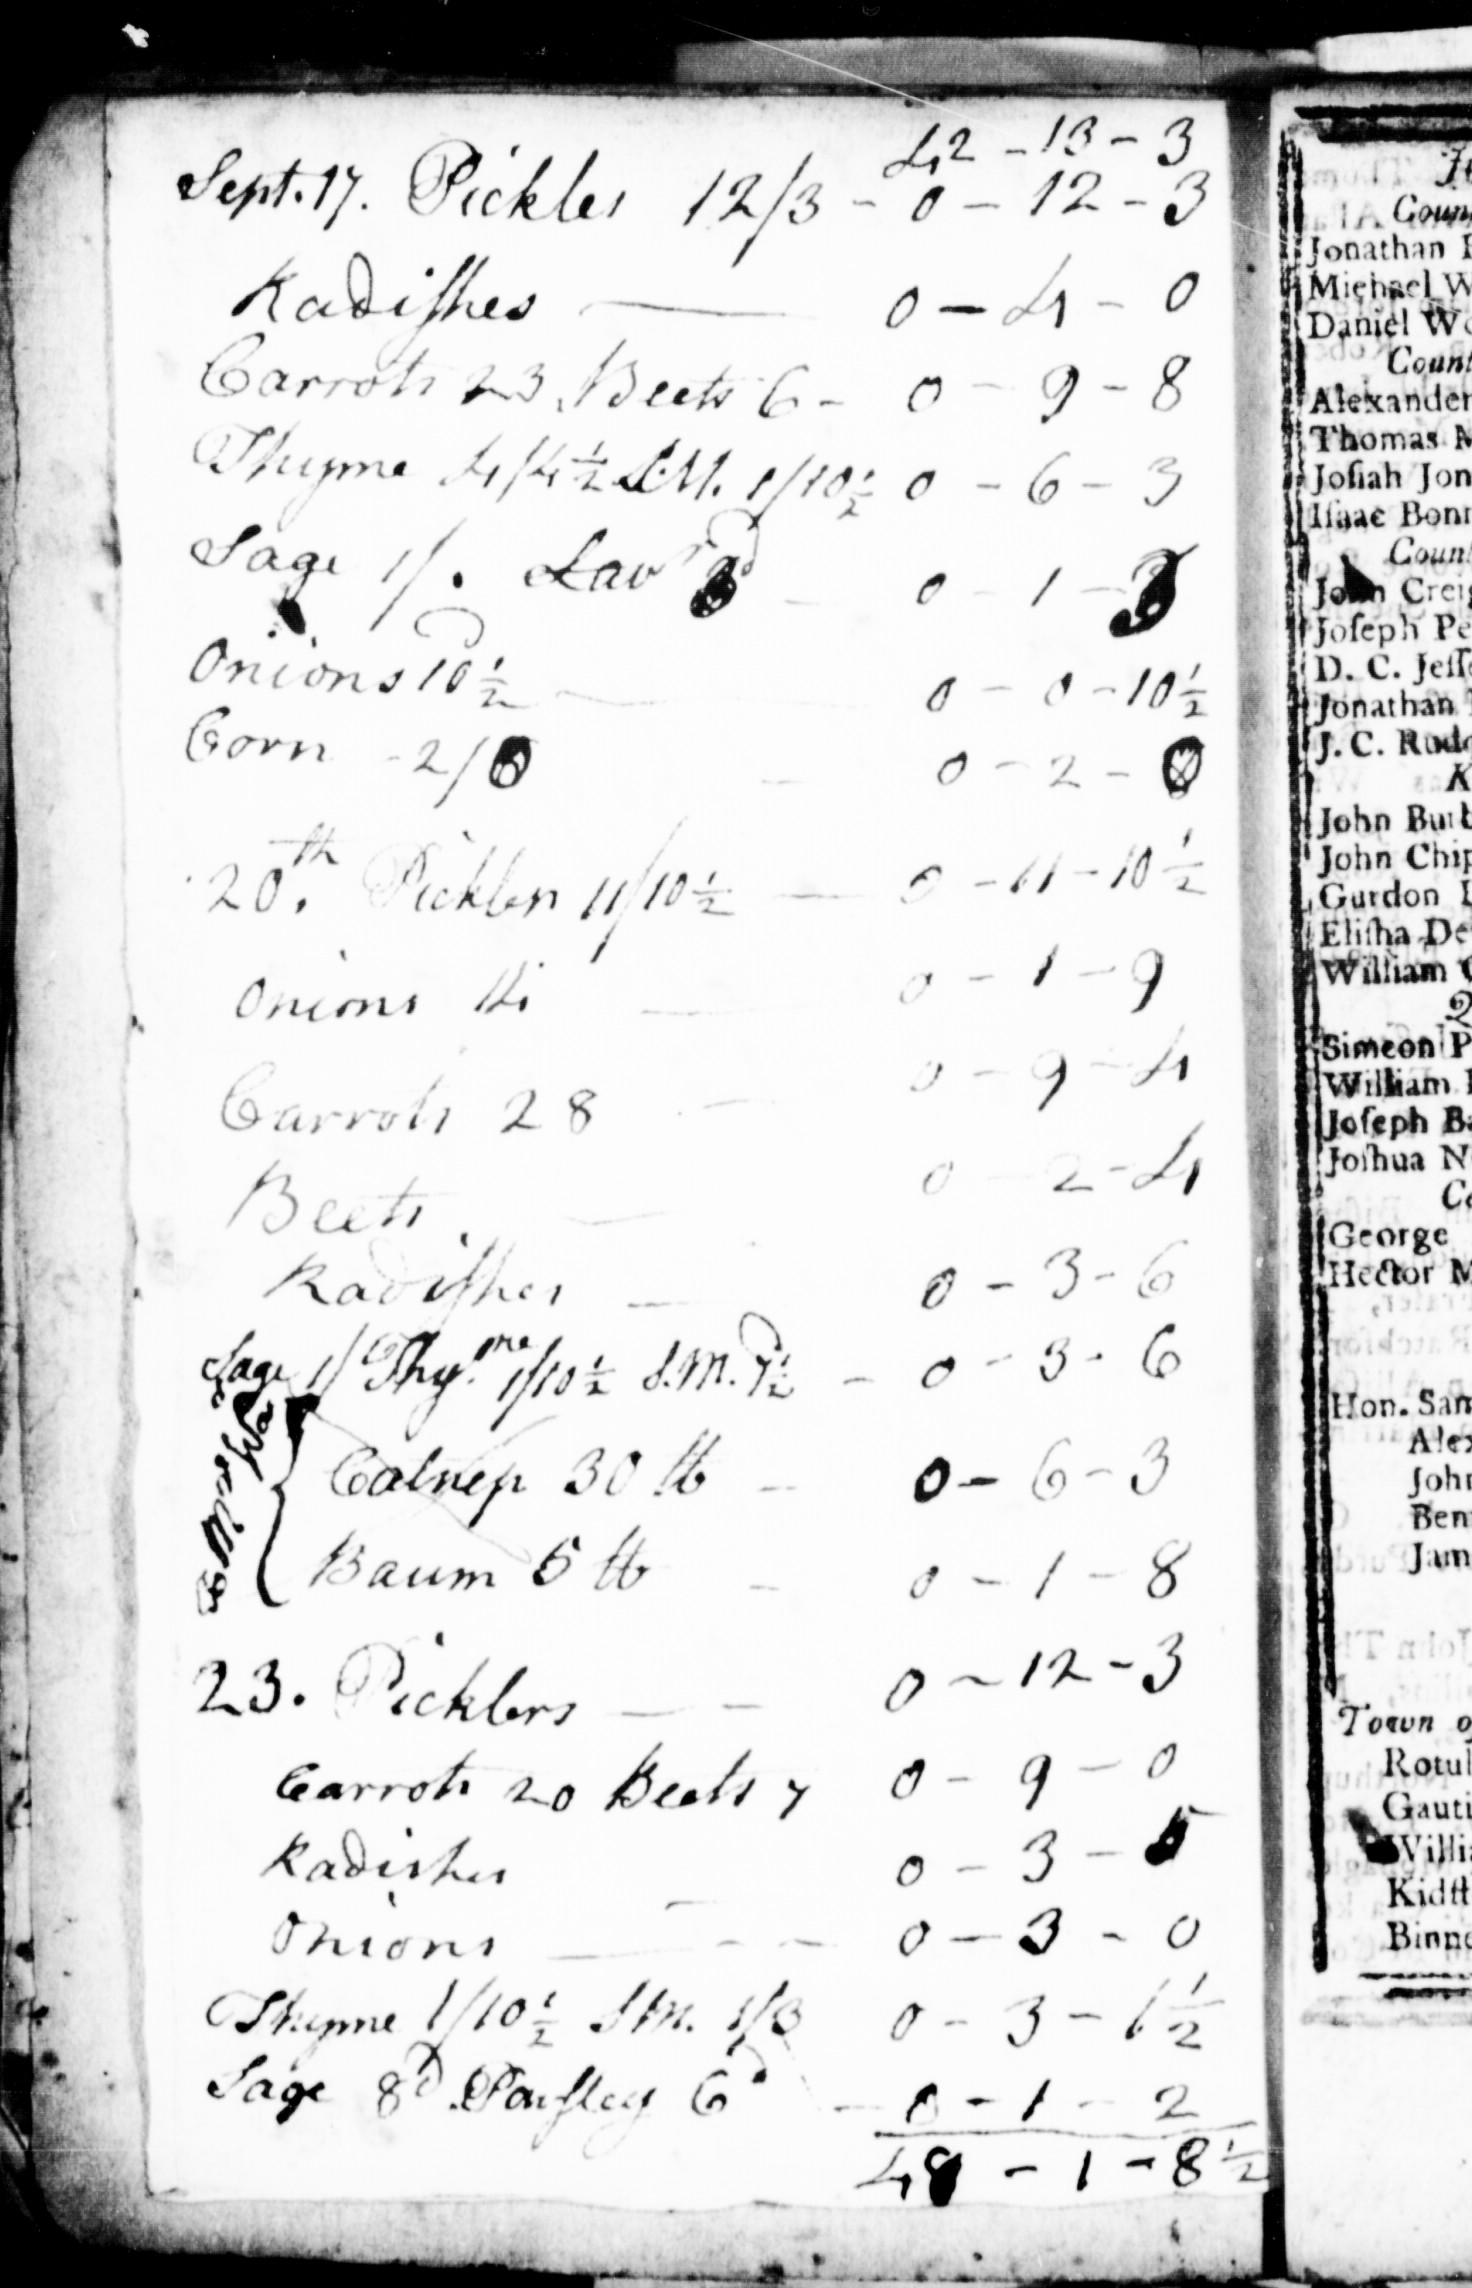 42 - 13 - 3
Sept. 17. Pickles 12/3 - 0 - 12 - 3
Radishes — 0 - 4 - 0
Carrots 23. Beets 6 - 0 - 9 - 8
Thyme 4/4½ S.M. 1/10½ 0 - 6 - 3
Sage 1/. Lavr 3d - 0 - 1 - 3
Onions 10½d — 0 - 0 - 10½
Corn - 2/0 - 0 - 2 - 0
20th. Pickles 11/10½ — 0 - 11 - 10½
Onions 14 — 0 - 1 - 9
Carrots 28 — 0 - 9 - 4
Beets — 0 - 2 - 4
Radishes — 0 - 3 - 6
Sage 1/ Thyme 1/10½ S.M. 7½d - 0 - 3 - 6
Catnep 30 lb - 0 - 6 - 3
Baum 5 lb - 0 - 1 - 8
23. Picklers — 0 - 12 - 3
Carrots 20 Beets 7 0 - 9 - 0
Radishes 0 - 3 - 5
Onions — 0 - 3 - 0
Thyme 1/10½ S.M. 1/3 0 - 3 - 1½
Sage 8d. Parsley 6d - 0 - 1 - 2
48 - 1 - 8½
Jonathan
Michael
Daniel
Alexander
Thomas
Josiah
Isaac
John
Joseph
D. C.
Jonathan
J. C.
John
John
Gurdon
Elisha
William
Simeon
William
Joseph
Joshua
George
Hector
Hon.
Town